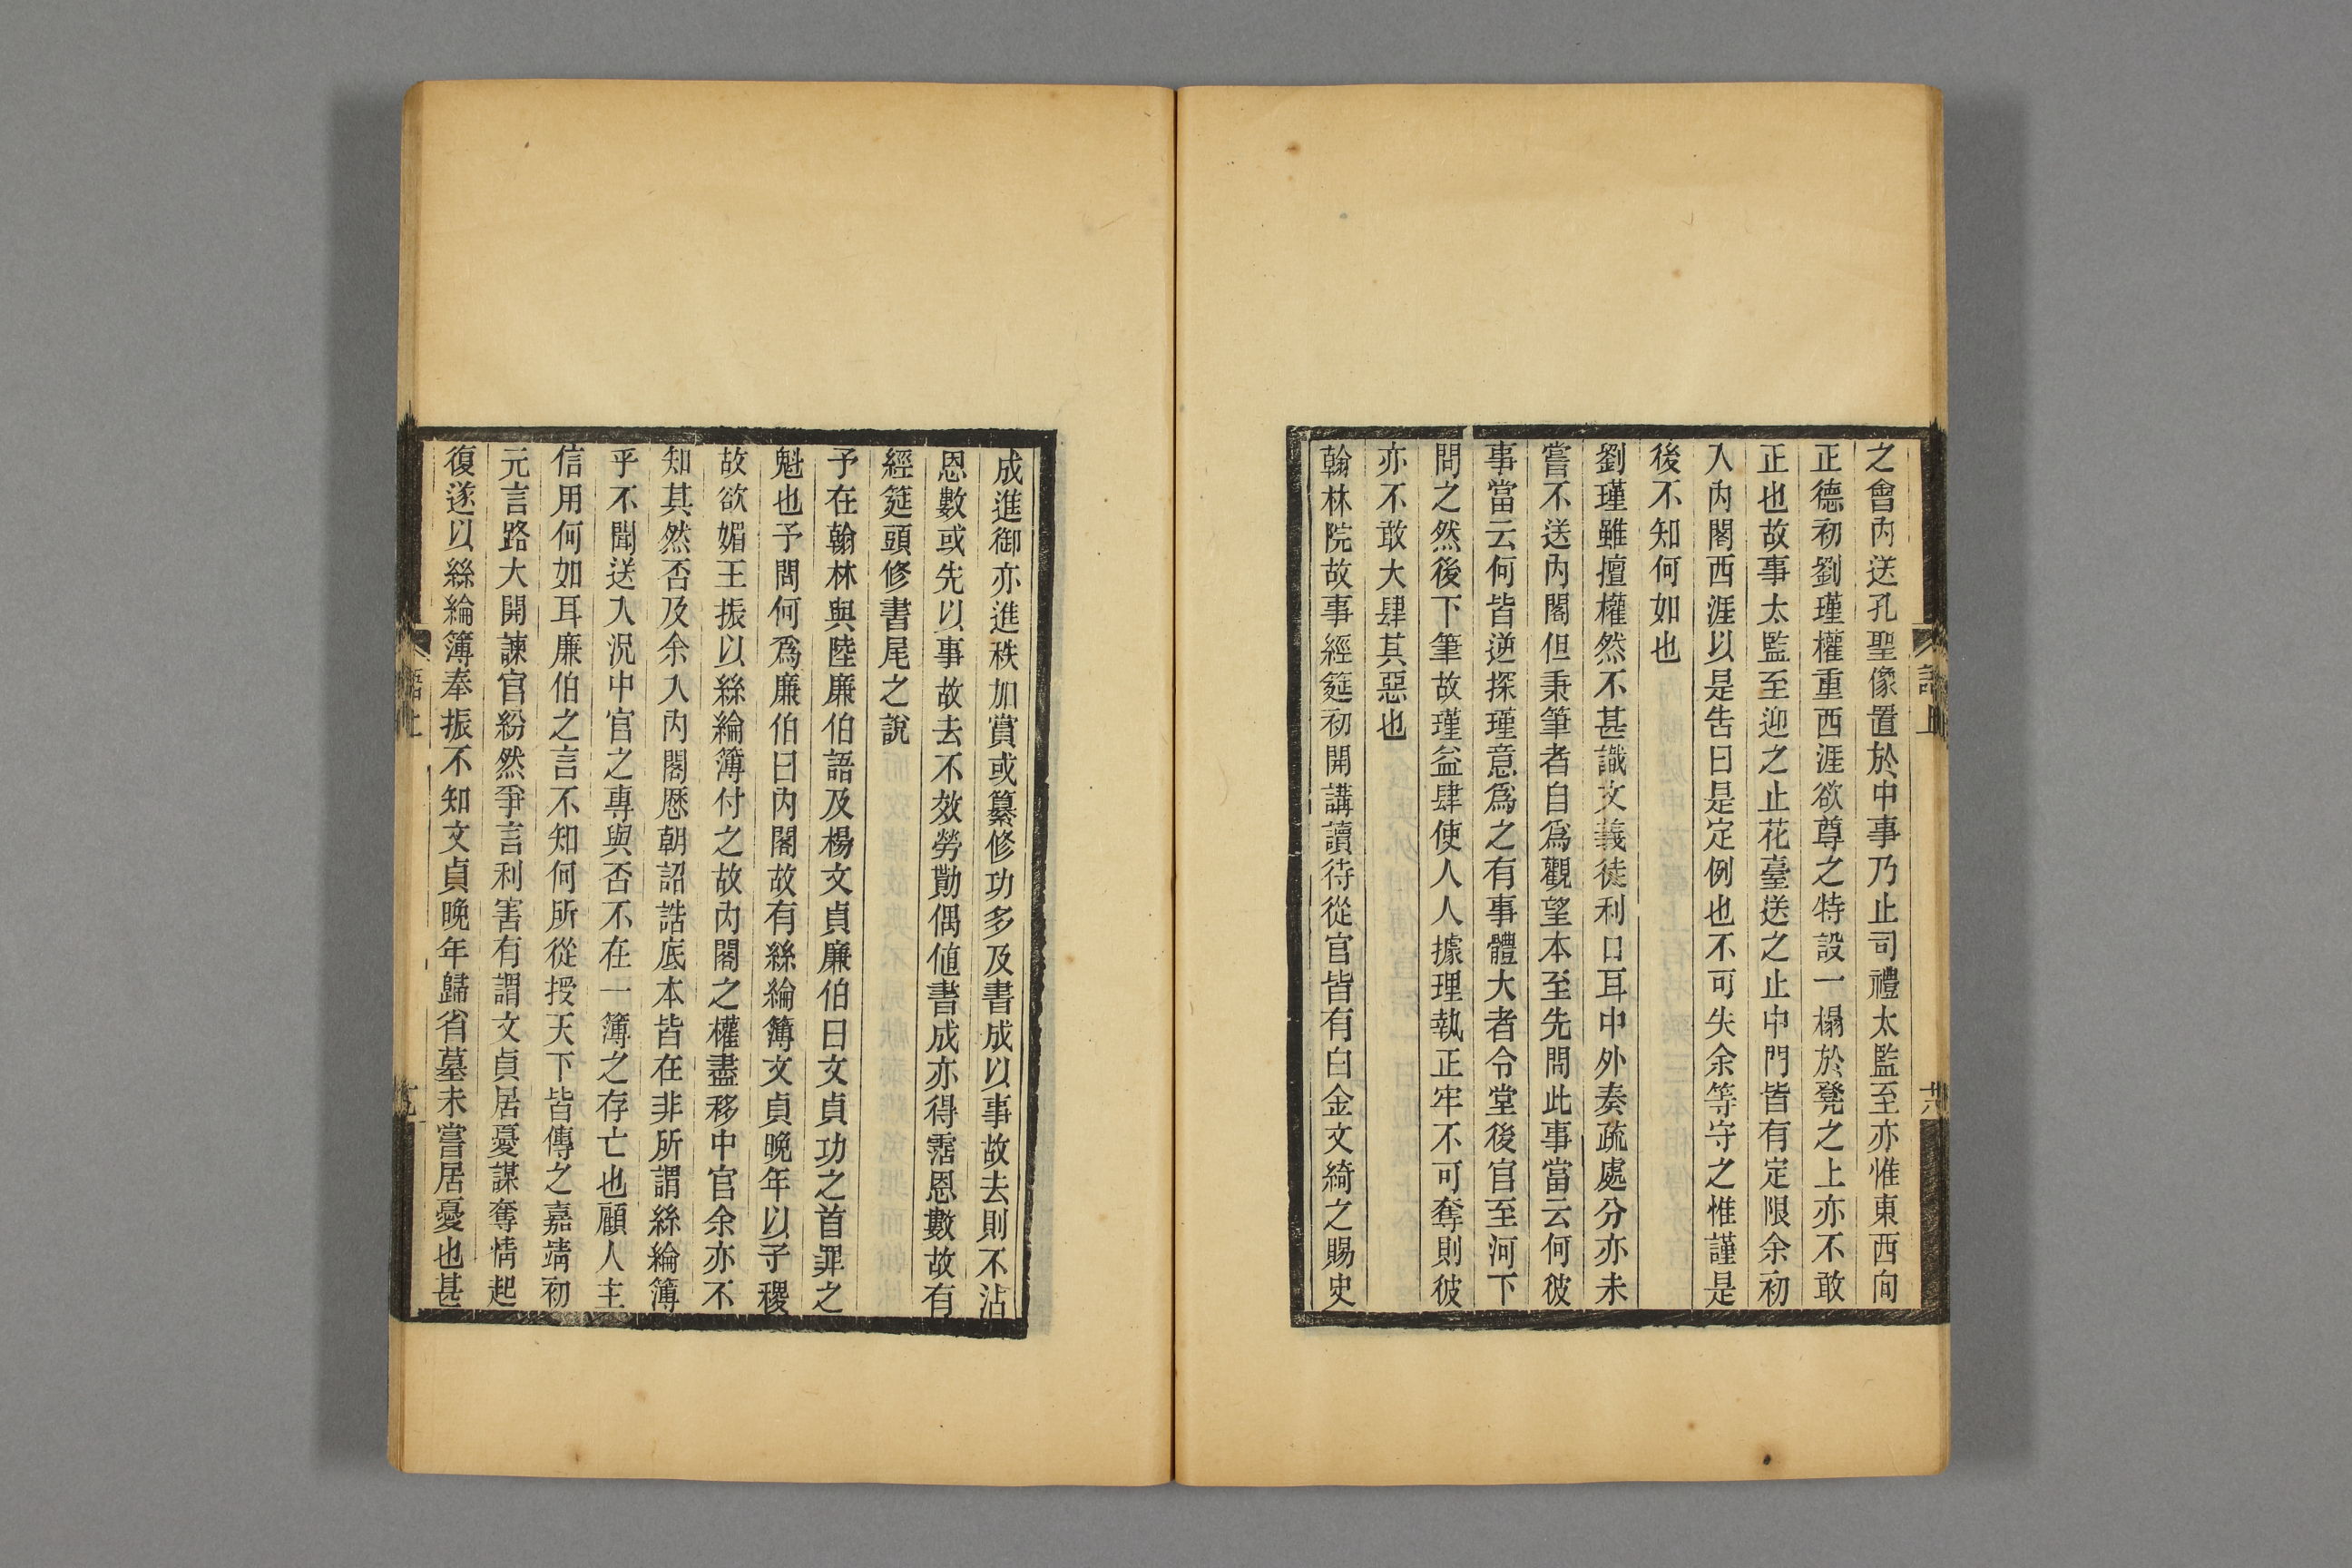 之會內送孔聖像置於中事乃止司禮太監至亦惟東西向
正德初劉瑾權重西涯欲尊之特設一榻於凳之上亦不敢
正也故事太監至迎之止花臺送之止中門皆有定限余初
入內閣西涯以是告曰是定例也不可失余等守之惟謹是
後不知何如也
劉瑾雖擅權然不甚識文義徒利口耳中外奏疏處分亦未
嘗不送內閣但秉筆者自爲觀望本至先問此事當云何彼
事當云何皆逆探瑾意爲之有事體大者令堂後官至河下
問之然後下筆故瑾益肆使人人據理執正牢不可奪則彼
亦不敢大肆其惡也
翰林院故事經筵初開講讀待從官皆有白金文綺之賜史
成進御亦進秩加賞或纂修功多及書成以事故去則不沾
恩數或先以事故去不效勞勩偶值書成亦得霑恩數故有
經筵頭修書尾之說
予在翰林與陸廉伯語及楊文貞廉伯曰文貞功之首罪之
魁也予問何爲廉伯曰內閣故有絲綸簿文貞晚年以子稷
故欲媚王振以絲綸簿付之故內閣之權盡移中官余亦不
知其然否及余入內閣歷朝詔誥底本皆在非所謂絲綸簿
乎不聞送入況中官之專與否不在一簿之存亡也顧人主
信用何如耳廉伯之言不知何所從授天下皆傳之嘉靖初
元言路大開諫官紛然爭言利害有謂文貞居憂謀奪情起
復遂以絲綸簿奉振不知文貞晚年歸省墓未嘗居憂也甚
語上